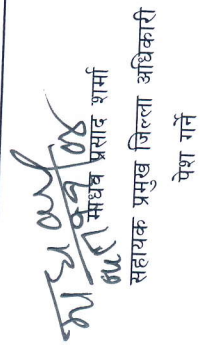 माधव प्रसाद शर्मा
सहायक प्रमुख जिल्ला अधिकारी
पेश गर्ने